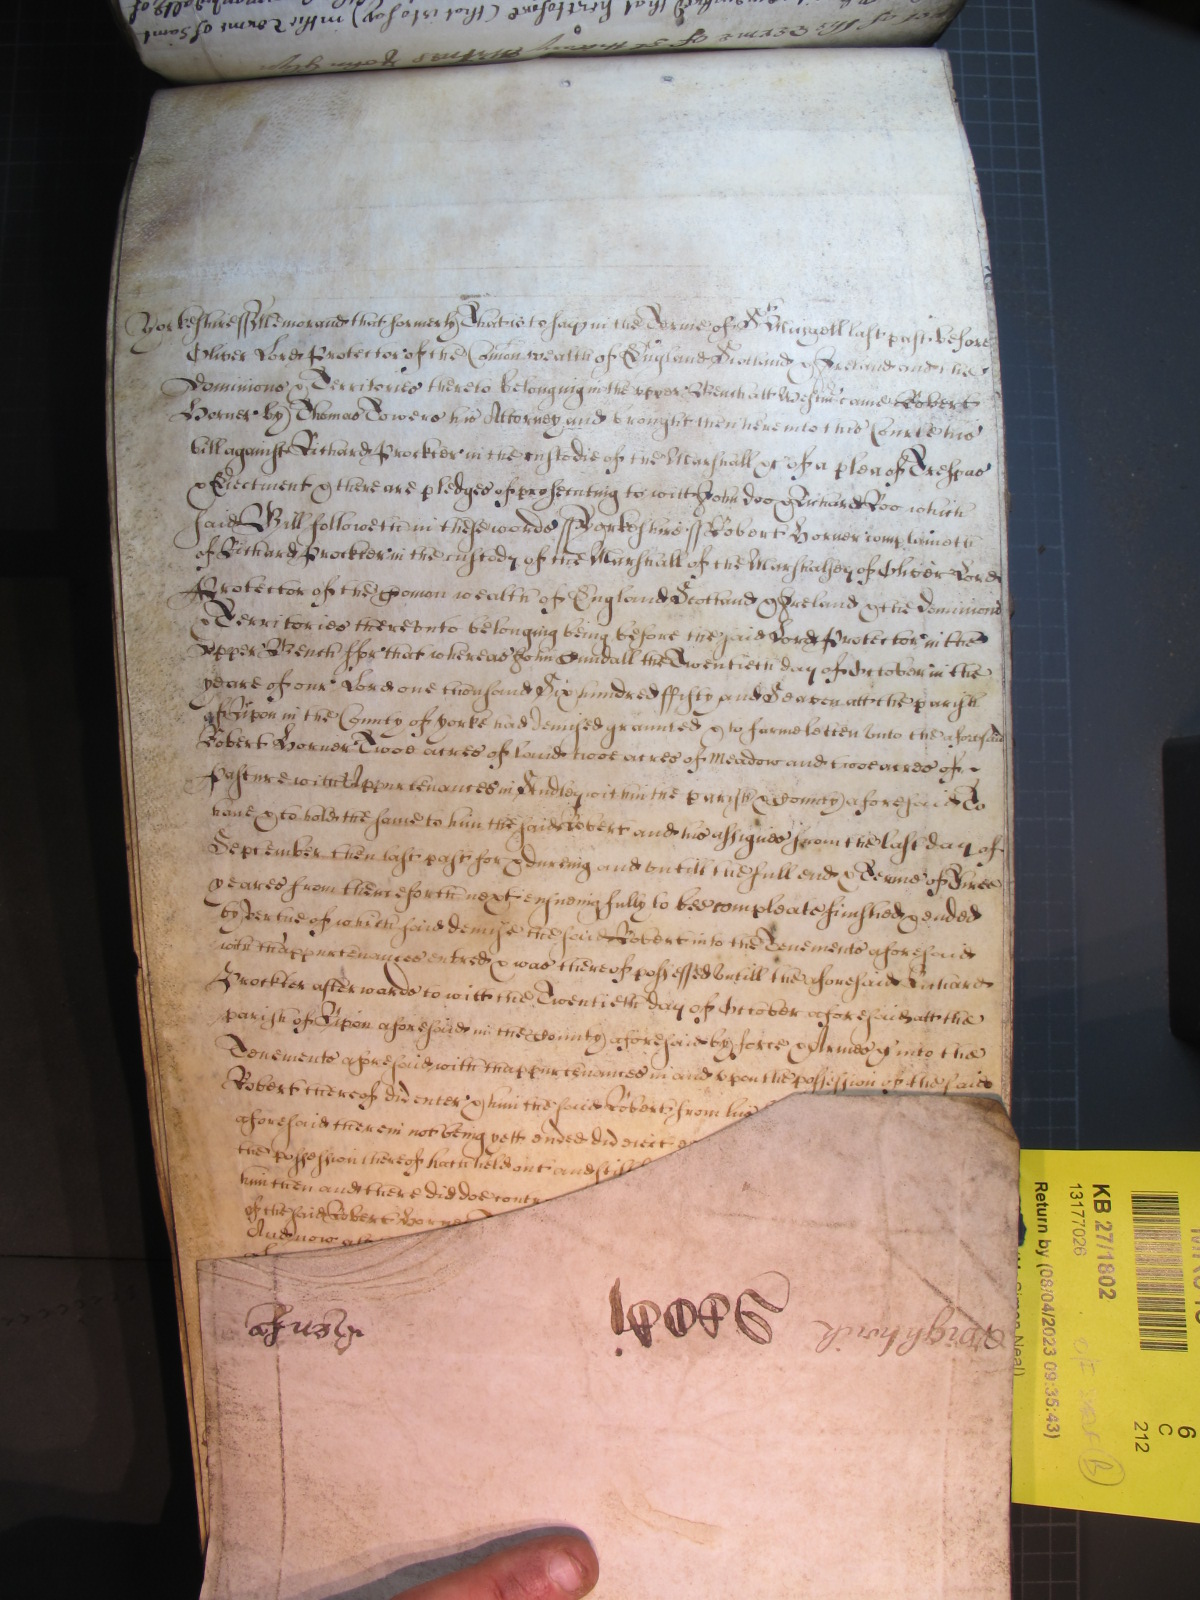 Yorkeshire ss Memorand that formerly That is to say in the Terme of St Michaell last past before
Oliver Lord Protector of the Comon wealth of England Scotland & Ireland and the
Dominions & Territories thereto belonging in the upper Bench att Westmr came Robert
Horner by Thomas Towers his Attorney and brought then here into this Court his
bill against Richard Prockter in the custodie of the Marshall &c of a plea of Trespas
& Eiectment & there are pledges of prosecuting to witt John Doo & Richard Roo which
said Bill followeth in these words ss Yorkeshire ss Robert Horner complaineth
of Richard Prockter in the custody of the Marshall of the Marshalsey of Oliver Lord
Protector of the Comon wealth of England Scotland & Ireland & the Dominions
& Territories thereunto belonging being before the said Lord Protector in the
Upper Bench for that whereas John the Twentieth day of October in the
yeare of our Lord one thousand Six hundred ffifty and Seaven att the parish
of Ripon in the County of Yorke had demised graunted & to farme letten unto the aforesaid
Robert Horner Twoe acres of land twoe acres of meadow and twoe acres of
pasture with Appurtenances in Studley within the parish & County aforesaid To
have & to hold the same to him the said Robert and his assignes from the last day of
September then last past for & dureing and untill the full end & Terme of Three
yeares from thenceforth next ensueing fully to bee compleate finished & ended
by vertue of which said demise the said Robert into the Tenements aforesaid
with thappurtenances entred & was thereof possessed untill the aforesaid Richard
Prockter afterwards to witt the Twentieth day of October aforesaid att the
parish of Ripon aforesaid in the County aforesaid by force & Armes &c into the
Tenements aforesaid with thappurtenances in and upon the possession of the said
Robert thereof did enter & him the said Robert from his
aforesaid therein not being yett ended did eiect
the possession thereof hath held out and still
him then and there did doe contr
of the said Robert Horner
And now att
KB 27/1802
13177026
Return by (08/04/2023 09:35:43)
6
C
212